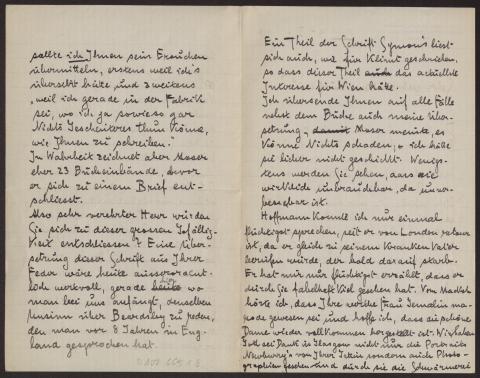 sollte ich Ihnen sein Ersuchen
übermitteln, erstens weil ich's
übersetzt hätte und zweitens
„weil ich gerade in der Fabrik
sei, wo ich ja sowieso gar
Nichts Gescheiteres thun könne,
wie Ihnen zu schreiben."
In Wahrheit zeichnet aber Moser
eher 23 Bucheinbände, bevor
er sich zu einem Brief ent-
schliesst.
Also sehr verehrter Herr würden
Sie sich zu dieser grossen Gefällig-
keit entschliessen? Eine Über-
setzung dieser Schrift aus Ihrer
Feder wäre heute ausserordent-
lich wertvoll, gerade heute wo
man bei uns anfängt, denselben
Unsinn über Beardsley zu reden,
den man vor 8 Jahren in Eng-
land gesprochen hat.
Ein Theil der Schrift Symons liest
sich auch, wie für Klimt geschrieben,
so dass dieser Theil auch das actuellste
Interesse für Wien hätte.
Ich übersende Ihnen auf alle Fälle
nebst dem Buche auch meine Über-
setzung, damit Moser meinte, es
könne Nichts schaden, ich hätte
sie lieber nicht geschickt. Wenigs-
tens werden Sie sehen, dass sie
wirklich unbrauchbar, da unver-
besserbar ist.
Hoffmann konnte ich nur einmal
flüchtigst sprechen, seit er von London retour
ist, da er gleich zu seinem kranken Vater
berufen wurde, der bald darauf starb.
Er hat mir nur flüchtigst erzählt, dass er
durch Sie fabelhaft viel gesehen hat. Von
höre ich, dass Ihre werthe Frau Gemalin ma-
rode gewesen sei und hoffe ich, dass die schöne
Dame wieder vollkommen hergestellt ist. Wir haben
Gott sei Dank in Glasgow nicht nur die Portraits
Newbery's von Ihrer sondern auch Photo-
graphien gesehen und durch sie die Schwärmerei